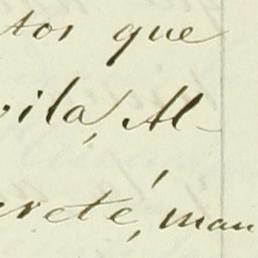 tos que
vila, Al-
creté, man